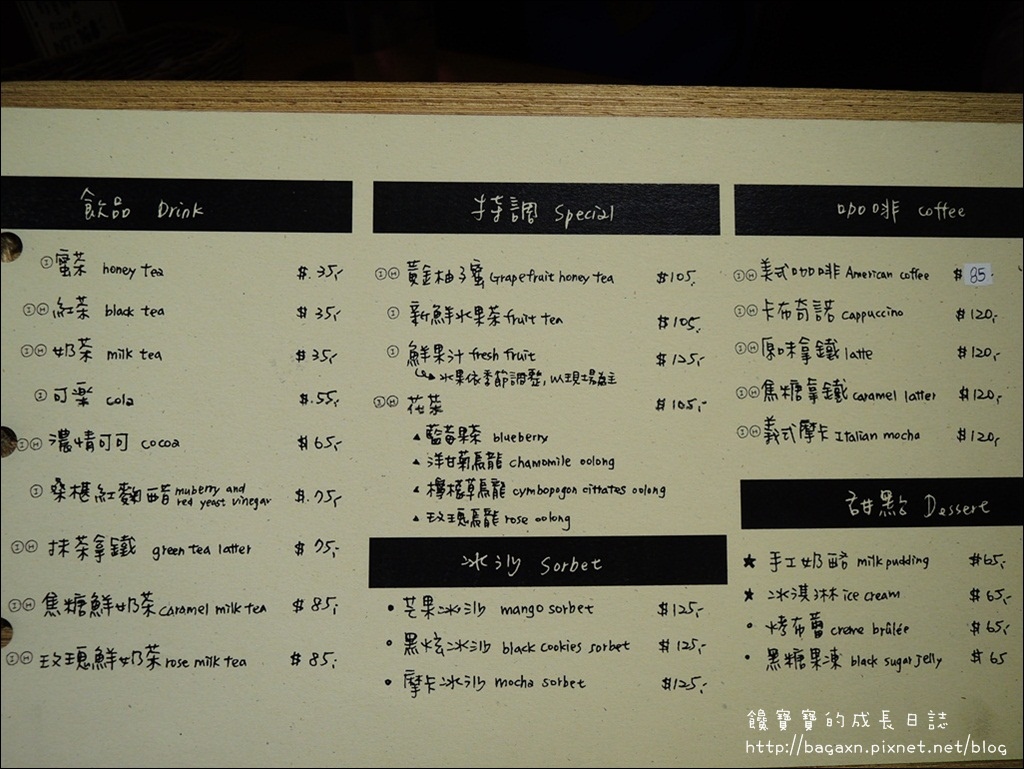 飲品 Drink
Ⓘ蜜茶 honey tea $.35,-
ⒾⒽ紅茶 black tea $ 35,-
ⒾⒽ奶茶 milk tea $.35,-
Ⓘ可樂 cola $.55,-
ⒾⒽ濃情可可 cocoa $ 65,-
Ⓘ桑椹紅麴醋 muberry and
red yeast vinegar $.75,-
ⒾⒽ抹茶拿鐵 green tea latter $ 75,-
ⒾⒽ焦糖鮮奶茶 caramel milk tea $ 85,-
ⒾⒽ玫瑰鮮奶茶 rose milk tea $ 85,-
特調 Special
ⒾⒽ黃金柚子蜜 Grapefruit honey tea $105,
Ⓘ新鮮水果茶 fruit tea $105,
Ⓘ鮮果汁 fresh fruit $125,-
水果依季節調整,以現場為主
ⒾⒽ花茶 $105,-
▲藍莓果茶 blueberry
▲洋甘菊烏龍 chamomile oolong
▲檸檬草烏龍 cymbopogon cittates oolong
▲玫瑰烏龍 rose oolong
冰沙 Sorbet
• 芒果冰沙 mango sorbet $125,-
• 黑炫冰沙 black cookies sorbet $125,-
• 摩卡冰沙 mocha sorbet $125,-
咖啡 coffee
ⒾⒽ美式咖啡 American coffee $ 85.
ⒾⒽ卡布奇諾 cappuccino $120,-
ⒾⒽ原味拿鐵 latte $120,-
ⒾⒽ焦糖拿鐵 caramel latter $120,-
ⒾⒽ義式摩卡 Italian mocha $120,
甜點 Dessert
★ 手工奶酪 milk pudding $65,
★ 冰淇淋 ice cream $65,-
• 烤布蕾 creme brûlée $65,
• 黑糖果凍 black sugar jelly $ 65
饞寶寶的成長日誌
http://bagaxn.pixnet.net/blog